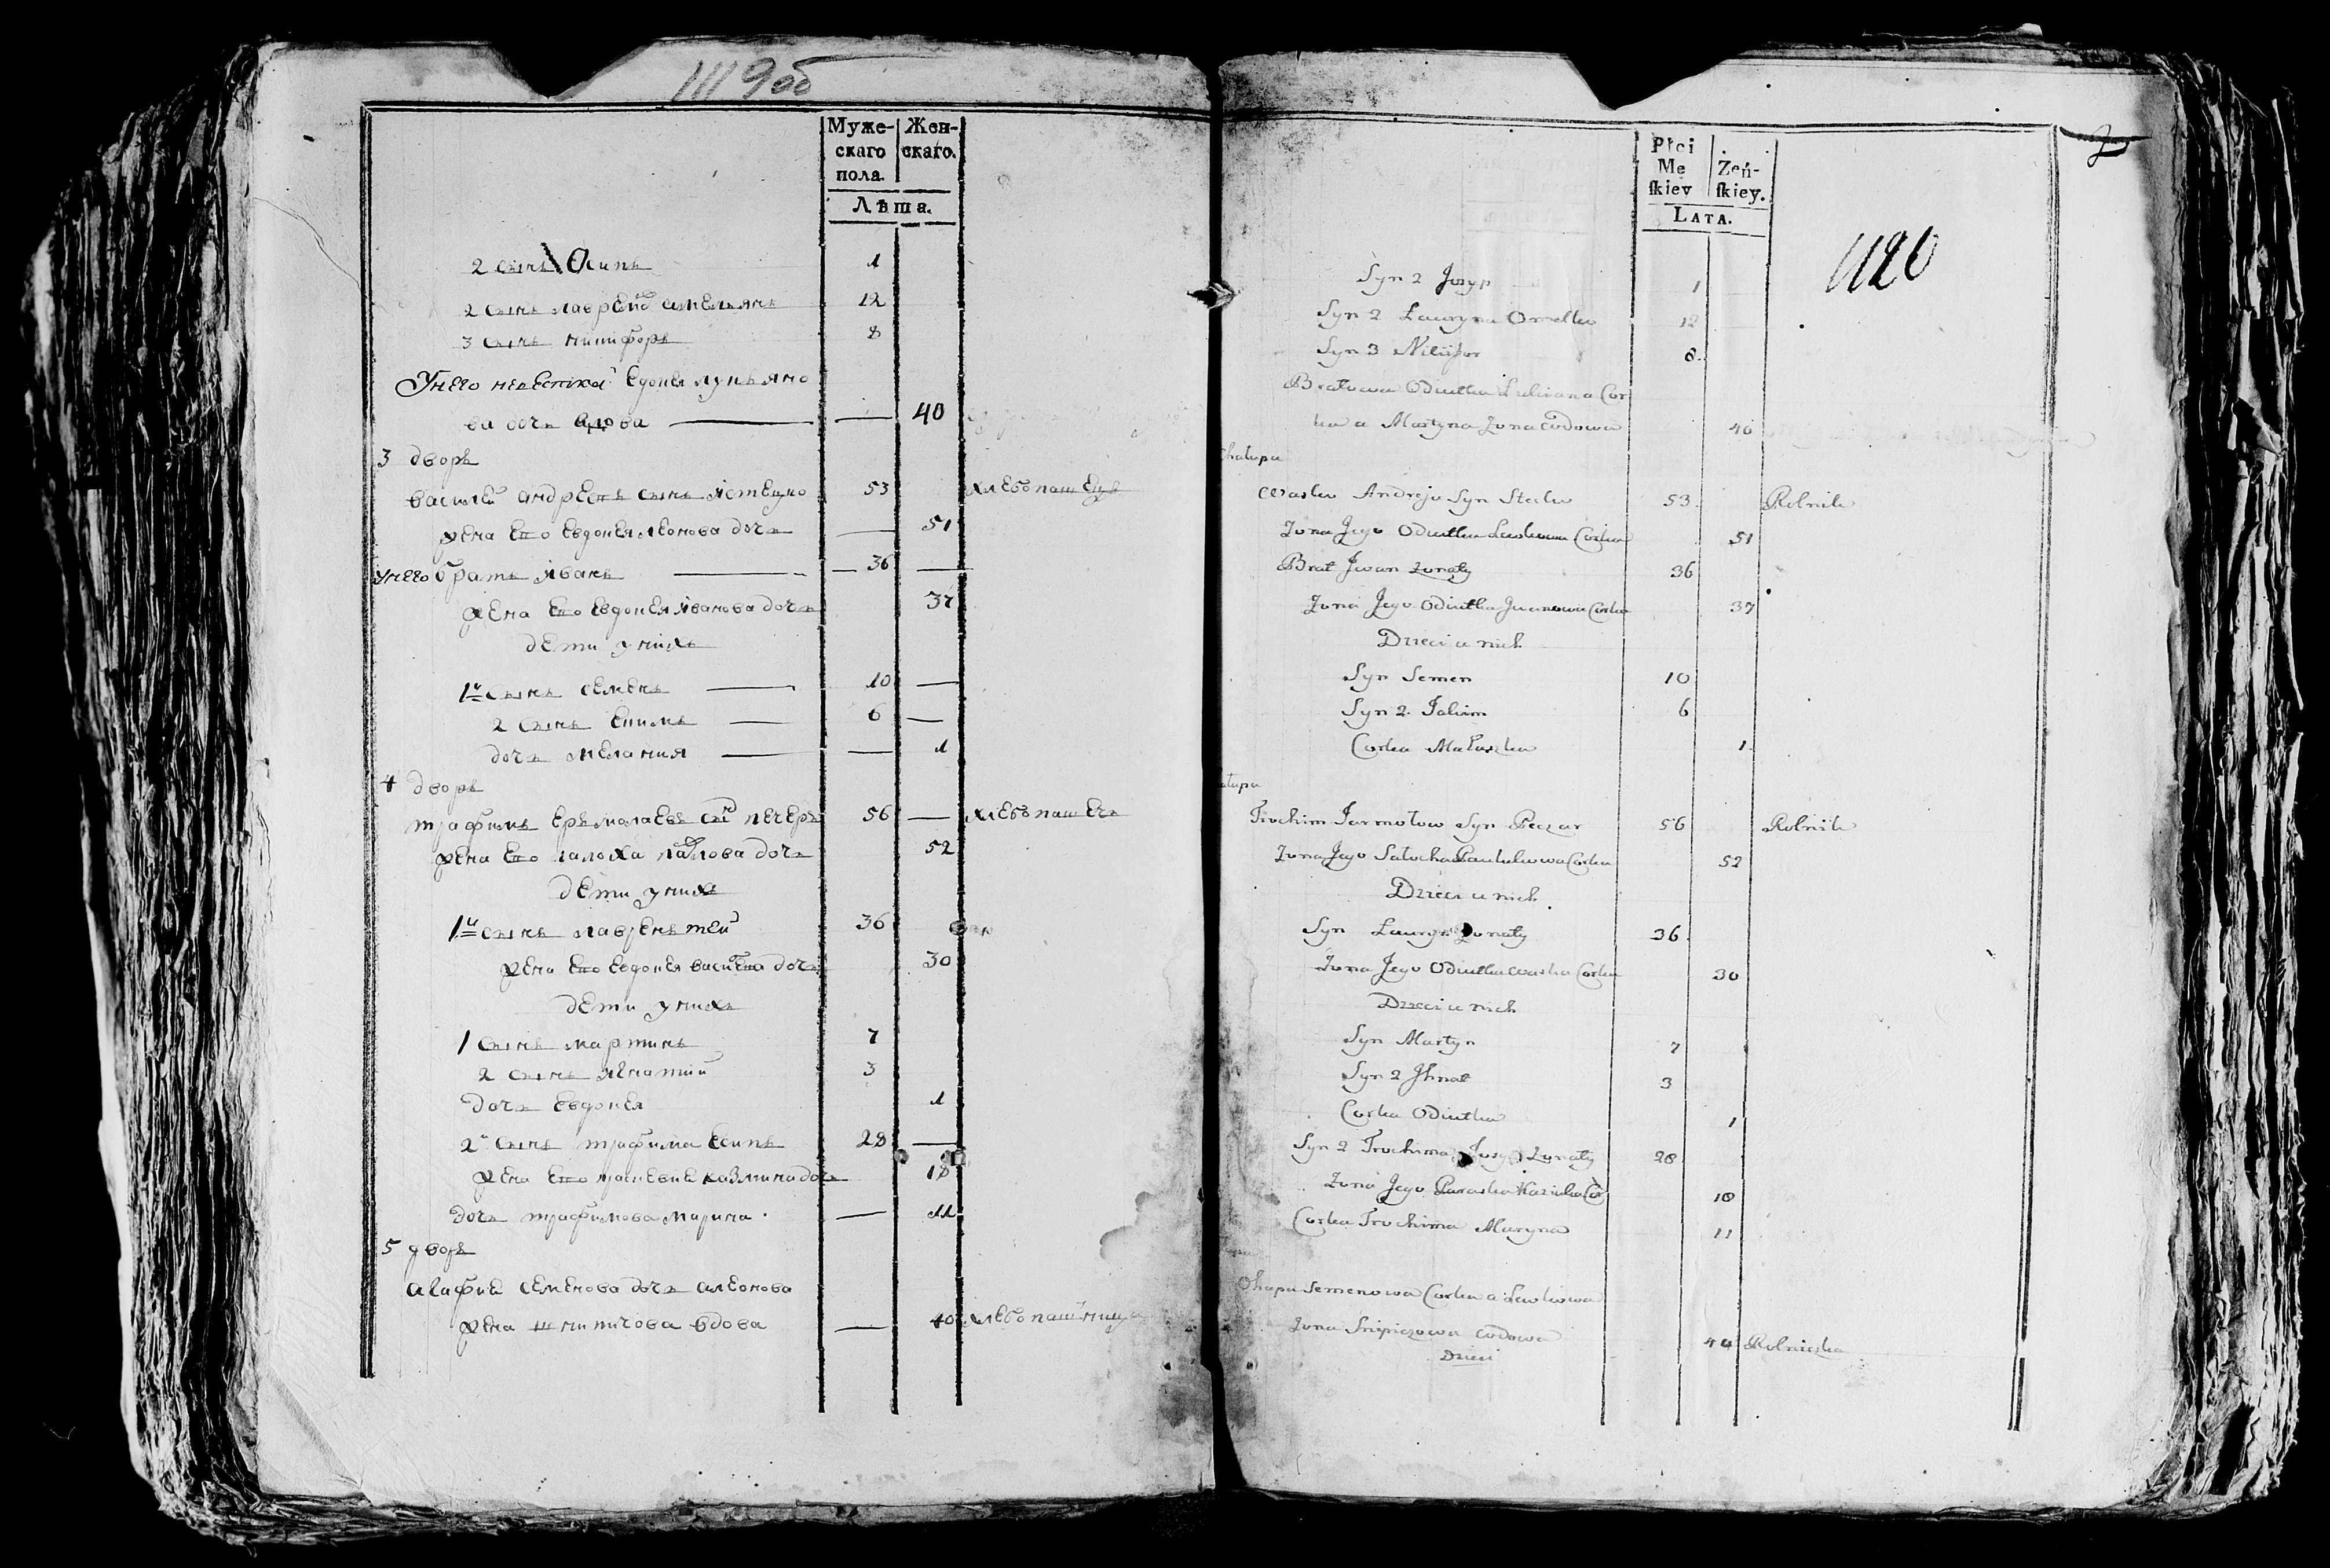 1119об
Муже-
скаго
пола.
Жен-
скаго.
Лѣта.
2 сынъ Осипъ 1
2 сынъ лаврена омельянъ 12
3 сынъ никифоръ 8
Унего невестка Едокея лукьяно
ва дочь вдова 40
3 дворъ
василей андреевъ сынъ 53 хлебопашецъ
жена Его Евдокея леонова дочь 51
унего братъ иванъ 36
жена Его Евдокея иванова дочь 37
дети уних
1й сынъ семенъ 10
2 сынъ Екимъ 6
дочь мелания 1
4 дворъ
трофимъ Ермолаевъ сынъ печеръ 56 хлебопашецъ
жена Его павлова дочь 52
дети уних
1й сынъ лаврентей 36
жена Его Евдокея василева дочь 30
дети уних
1 сынъ мартинъ 7
2 сынъ игнатий 3
дочь Евдокея 1
2й сынъ трофима Есипъ 28
жена Его казмина дочь 18
дочь трофимова марина 11
5 дворъ
агафия семенова дочь алеонова
жена шнипичова вдова 40 хлебопашница
1120
Płci
Me
ſkiey
Zeń-
ſkiey.
Lata.
Syn 2 Jozyp 1
Syn 2 Lauryna Omelko 12
Syn 3 Nikifor 8
Bratowa Odiutka Lukiana Cor
ka a Martyna Zona wdowa 40
Chalupa
Wasko Andreja Syn Stecko 53 Rolnik
Zona Jego Odiutka Leukowa Corka 51
Brat Jwan zonaty 36
Zona Jego Odiutka Jwanowa Corka 37
Dzieci u nich
Syn Semen 10
Syn 2 Jakim 6
Corka Małaszka 1
Trochim Jarmołow Syn Peczar 56 Rolnik
Zona Jego Sałocha Corka 52
Dzieci u nich
Syn Lauryn Zonaty 36
Zona Jego Odiutka Waska Corka 30
Dzieci u nich
Syn Martyn 7
Syn 2 Jhnat 3
Corka Odiutka 1
Syn 2 Trochima Jozyp Zonaty 28
Zona Jego Paraska Kaziuka Cor 18
Corka Trochima Maryna 11
Ohapa Semenowa Corka a Leukowa
Zona Snipiczowa wdowa 40 Rolniczka
Dzieci